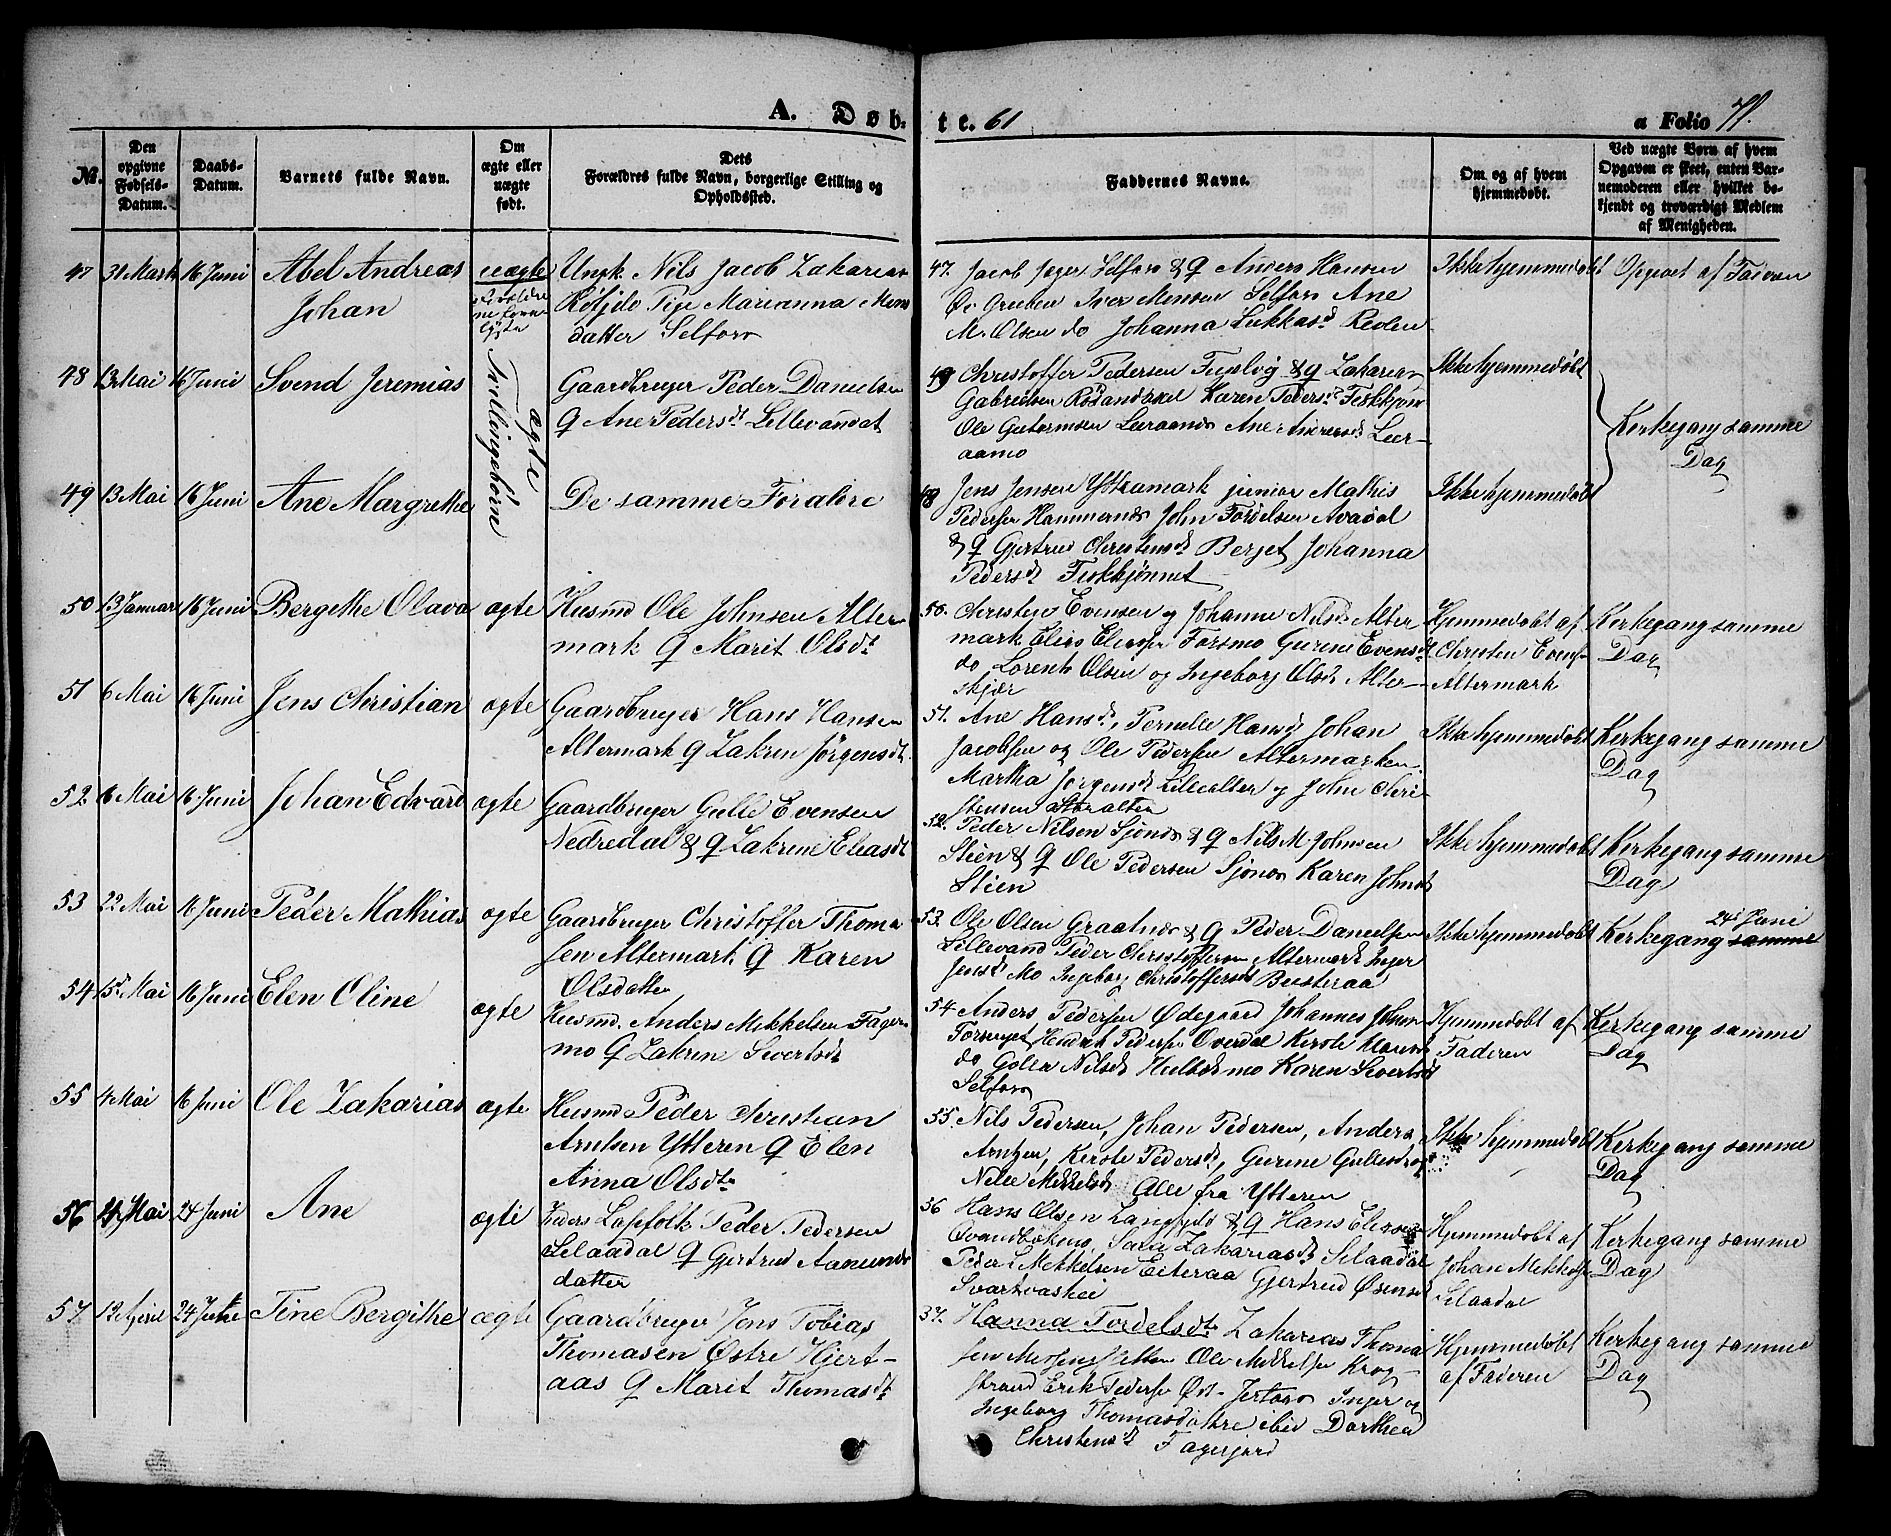 A. Døb-
te. 61
a Folio 71.
No.
Den opgivne Fødsels-Datum.
Daabs-Datum.
Barnets fulde Navn.
Om ægte eller uægte født.
Dets Forældres fulde Navn, borgerlige Stilling og Opholdssted.
Faddernes Navne.
Om og af hvem hjemmedøbt.
Ved uægte Børn af hvem Opgaven er skeet, enten Barnemoderen eller hvilket bekjendt og troværdigt Medlem af Menigheden.
47 31 Marts 16 Juni Abel Andreas uægte Ungk. Nils Jacob Zakarias
Johan
Pige Marianna Mons
datter Selfors
47. Jacob Jeger Selfors & Q Anders Hansen
Iver Monsen Selfors Ane
M. Olsen do Johanna Lukkasd
Ikke hjemmedøbt Opgivet af Faderen
48 13 Mai 16 Juni Svend Jeremias
Tvillingebørn
ægte
Gaardbruger Peder Danielsen
Q Ane Pedersdt Lillevandet
49 Christoffer Pedersen & Q Zakarias
Gabrielsen Karen Pedersd
Ole Guttormsen Ane Andersd Leer-
aamo
Ikke hjemmedøbt
Kirkegang samme
Dag
49 13 Mai 16 Juni Ane Margrethe
De samme Forældre
48 Jens Jensen Yttramark junior Mathis
Pedersen John Tordelsen Avadal
& Q Gjertrud Christensdt Berget Johanna
Pedersdt Fiskkjønnet
Ikke hjemmedøbt
50 13 Januar 16 Juni Bergethe Olava ægte
Husmd Ole Johnsen Alter
mark Q Marit Olsdt
50. Christen Evensen og Johanna Nilsd Alter
mark Elias Eliesen Forsmo Gurine Evensdt
do Lorents Olsen og Ingeborg Olsdt Alter-
skjær
Hjemmedøbt af
Christen Evens-
Altermark
Kirkegang samme
Dag
51 6 Mai 16 Juni Jens Christian ægte
Gaardbruger Hans Hansen
Altermark Q Zakrin Jørgensdt
51. Ane Hansdt, Pernille Hansdt Johan
Jacobsen og Ole Pedersen Altermarken
Martha Jørgensdt Lillealter og John Chri-
stensen Storalter
Ikke hjemmedøbt
Kirkegang samme
Dag
52 6 Mai 16 Juni Johan Edvard ægte
Gaardbruger Gulle Evensen
Nedredal & Q Zakrine Eliasdt
52. Peder Nilsen Sjones & Q Nils M Johnsen
Stien & Q Ole Pedersen Sjonas Karen Johnsdt
Stien
Ikke hjemmedøbt
Kirkegang samme
Dag
53 22 Mai 16 Juni Peder Mathias ægte
Gaardbruger Christoffer Thoma
sen Altermark Q Karen
Olsdatter
53. Ole Olsen Graatnes & Q Peder Danielsen
Lillevand Peder Christoffersen Altermark Inger
Jensdt Mo Ingeborg Christoffersdt Busteraa
Ikke hjemmedøbt
24de Juni
Kirkegang samme
54 15d Mai 16 Juni Elen Oline ægte
Husmd. Anders Mikkelsen Fager
mo Q Zakrine Sivertsdt
54 Anders Pedersen Ødegaard Johannes Johnsen
Henrik Pedersen Overdal Kirste
do Nilsdt Karen Sivertsdt
Selfors
Hjemmedøbt af
Faderen
Kirkegang samme
Dag
55 4 Mai 16 Juni Ole Zakarias ægte
Husmd Peder Christian
Arntsen Ytteren Q Elen
Anna Olsdtr
55. Nils Pedersen, Johan Pedersen, Anders
Arntzen, Kirste Pedersdt, Gurine Gullesdt og
Nille Mikkelsdt Alle fra Ytteren
Ikke hjemmedøbt
Kirkegang samme
Dag
56 Mai 24 Juni Ane ægte
Lapfolk Peder Pedersen
Silaadal Q Gjertrud Aanunds
datter
56 Hans Olsen & Q Hans
Sara Zakariasdt Silaadal
Peder Mikkelsen Eiteraa Gjertrud
Svartvashei
Hjemmedøbt af
Johan Mikkelsen
Silaadal
Kirkegang samme
Dag
57 12 April 24 Juni Tine Bergithe ægte
Gaardbruger Jens Tobias
Thomasen Østre Hjert-
aas Q Marit Thomasdt
57. Hanna Tordelsdtr Zakarias Thoma
sen Ole Mikkelsen Krog-
strand Erik Pedersen Inger og
Ingeborg Thomasdøttre ibid Dorthea
Christensdt Fagerjord
Hjemmedøbt
af Faderen
Kirkegang samme
Dag